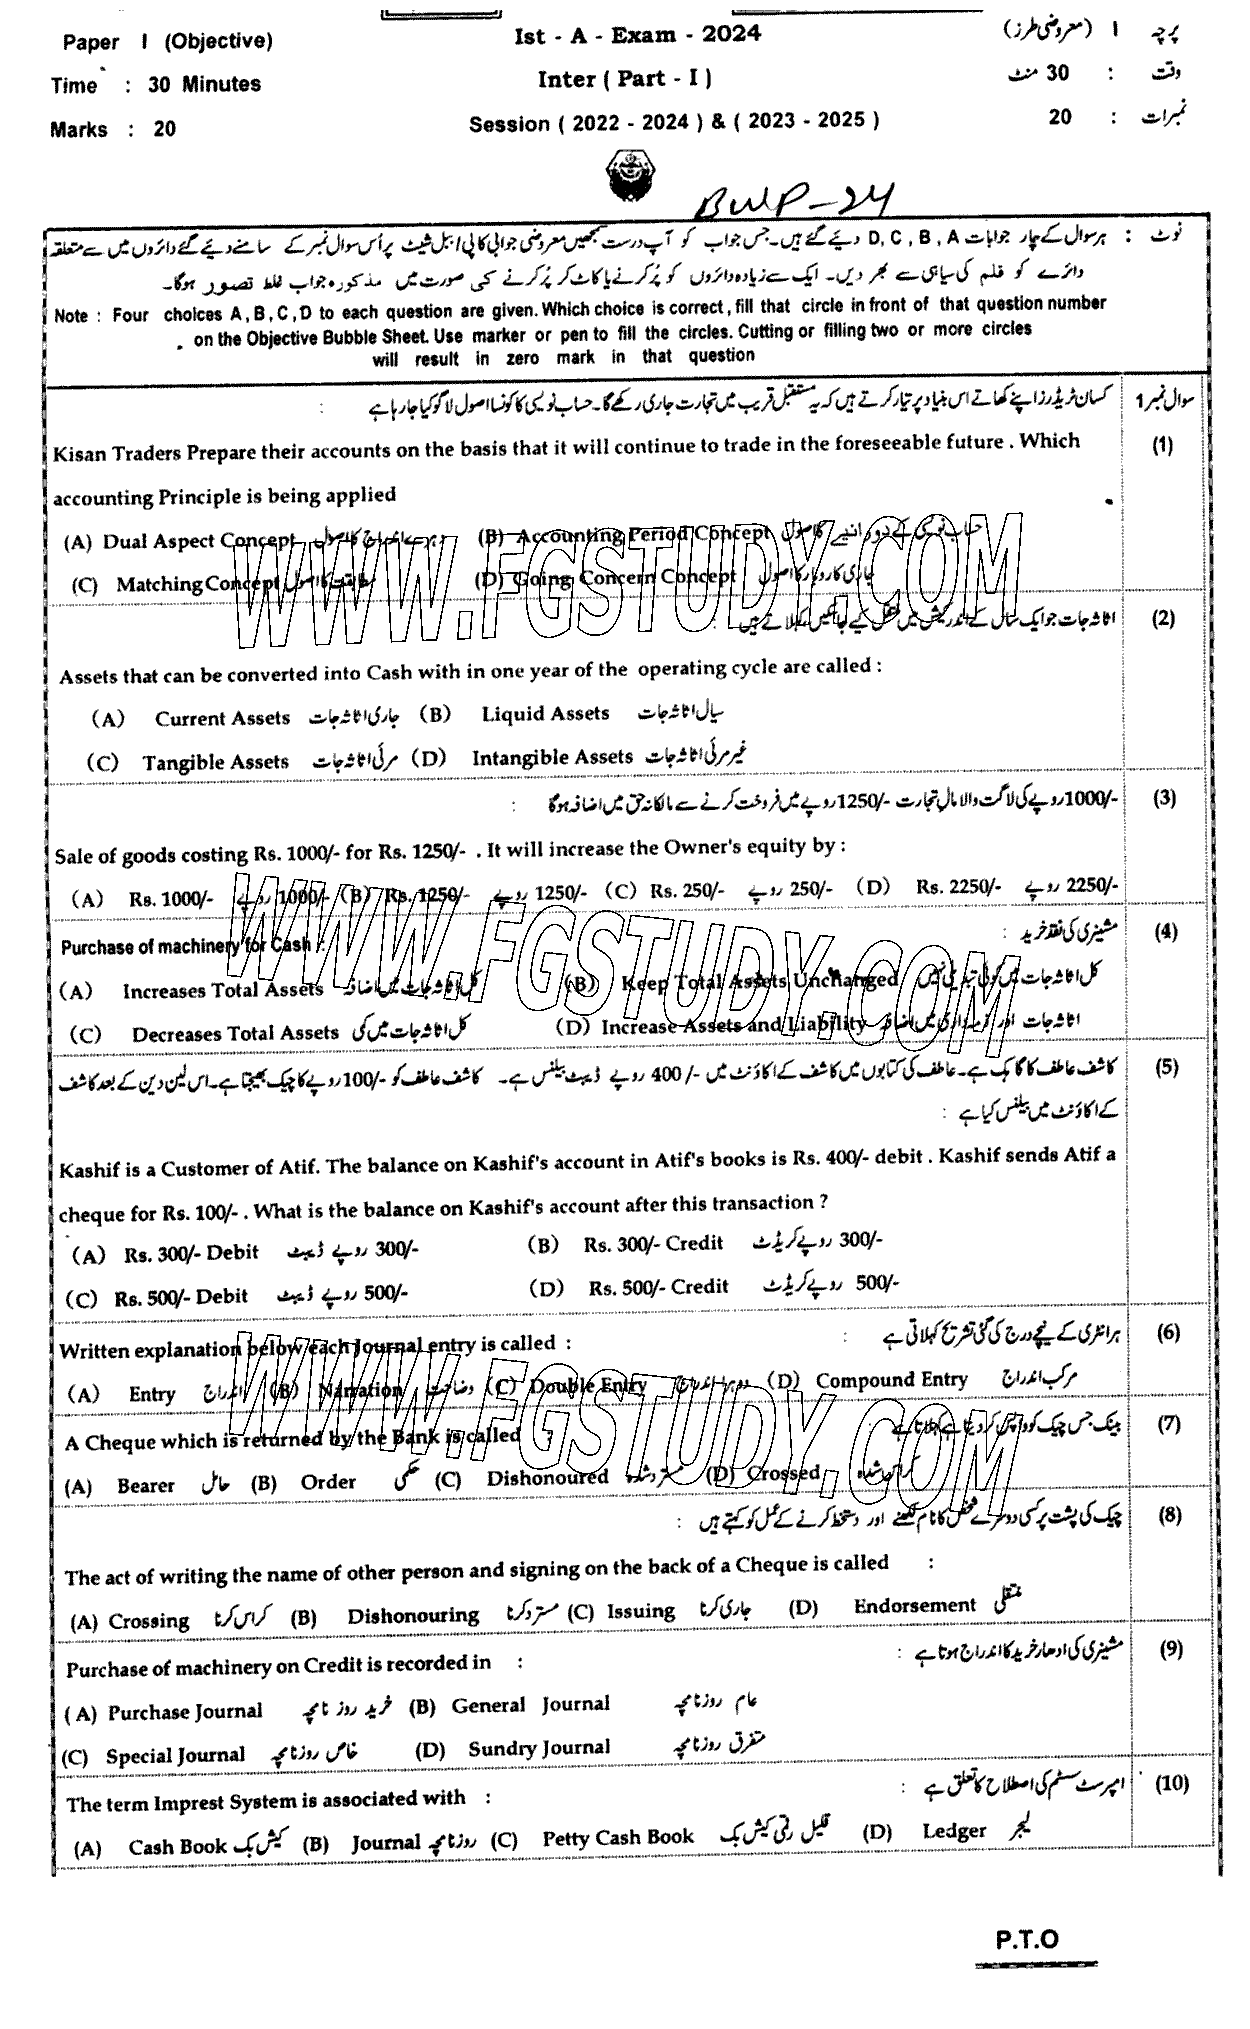 Paper I (Objective)
Ist - A - Exam - 2024
پرچہ I (معروضی طرز)
Time : 30 Minutes
Inter ( Part - I )
وقت : 30 منٹ
Marks : 20
Session ( 2022 - 2024 ) & ( 2023 - 2025 )
نمبرات : 20
BWP-24
نوٹ : ہر سوال کے چار جوابات D, C, B, A دیئے گئے ہیں۔ جس جواب کو آپ درست سمجھیں معروضی جوابی کاپی / ببل شیٹ پر اُس سوال نمبر کے سامنے دیئے گئے دائروں میں سے متعلقہ
دائرے کو قلم کی سیاہی سے بھر دیں۔ ایک سے زیادہ دائروں کو پُر کرنے یا کاٹ کر پُر کرنے کی صورت میں مذکورہ جواب غلط تصور ہوگا۔
Note : Four choices A, B, C, D to each question are given. Which choice is correct, fill that circle in front of that question number
on the Objective Bubble Sheet. Use marker or pen to fill the circles. Cutting or filling two or more circles
will result in zero mark in that question
سوال نمبر 1 کسان ٹریڈرز اپنے کھاتے اس بنیاد پر تیار کرتے ہیں کہ یہ مستقبل قریب میں تجارت جاری رکھے گا۔ حساب نویسی کا کونسا اصول لاگو کیا جا رہا ہے :
Kisan Traders Prepare their accounts on the basis that it will continue to trade in the foreseeable future . Which (1)
accounting Principle is being applied
(A) Dual Aspect Concept دہرے اندراج کا اصول (B) Accounting Period Concept حساب نویسی کے دورانیے کا اصول
(C) Matching Concept مطابقت کا اصول (D) Going Concern Concept جاری کاروبار کا اصول
اثاثہ جات جو ایک سال کے اندر کیش میں منتقل کیے جا سکیں کہلاتے ہیں : (2)
Assets that can be converted into Cash with in one year of the operating cycle are called :
(A) Current Assets جاری اثاثہ جات (B) Liquid Assets سیال اثاثہ جات
(C) Tangible Assets مرئی اثاثہ جات (D) Intangible Assets غیر مرئی اثاثہ جات
1000/- روپے کی لاگت والا مال تجارت 1250/- روپے میں فروخت کرنے سے مالکانہ حق میں اضافہ ہوگا : (3)
Sale of goods costing Rs. 1000/- for Rs. 1250/- . It will increase the Owner's equity by :
(A) Rs. 1000/- روپے 1000/- (B) Rs. 1250/- روپے 1250/- (C) Rs. 250/- روپے 250/- (D) Rs. 2250/- روپے 2250/-
مشینری کی نقد خرید : (4)
Purchase of machinery for Cash :
(A) Increases Total Assets کل اثاثہ جات میں اضافہ (B) Keep Total Assets Unchanged کل اثاثہ جات میں کوئی تبدیلی نہیں
(C) Decreases Total Assets کل اثاثہ جات میں کمی (D) Increase Assets and Liability اثاثہ جات اور ذمہ داری میں اضافہ
کاشف عاطف کا گاہک ہے۔ عاطف کی کتابوں میں کاشف کے اکاؤنٹ میں 400/- روپے ڈیبٹ بیلنس ہے۔ کاشف عاطف کو 100/- روپے کا چیک بھیجتا ہے۔ اس لین دین کے بعد کاشف (5)
کے اکاؤنٹ میں بیلنس کیا ہے :
Kashif is a Customer of Atif. The balance on Kashif's account in Atif's books is Rs. 400/- debit . Kashif sends Atif a
cheque for Rs. 100/- . What is the balance on Kashif's account after this transaction ?
(A) Rs. 300/- Debit روپے ڈیبٹ 300/- (B) Rs. 300/- Credit روپے کریڈٹ 300/-
(C) Rs. 500/- Debit روپے ڈیبٹ 500/- (D) Rs. 500/- Credit روپے کریڈٹ 500/-
ہر انٹری کے نیچے درج کی گئی تشریح کہلاتی ہے : (6)
Written explanation below each Journal entry is called :
(A) Entry اندراج (B) Narration وضاحت (C) Double Entry دوہرا اندراج (D) Compound Entry مرکب اندراج
بینک جس چیک کو واپس کر دیتا ہے کہلاتا ہے : (7)
A Cheque which is returned by the Bank is called :
(A) Bearer حامل (B) Order حکمی (C) Dishonoured مسترد شدہ (D) Crossed کراس شدہ
چیک کی پشت پر کسی دوسرے شخص کا نام لکھنے اور دستخط کرنے کے عمل کو کہتے ہیں : (8)
The act of writing the name of other person and signing on the back of a Cheque is called :
(A) Crossing کراس کرنا (B) Dishonouring مسترد کرنا (C) Issuing جاری کرنا (D) Endorsement منتقلی
مشینری کی ادھار خرید کا اندراج ہوتا ہے : (9)
Purchase of machinery on Credit is recorded in :
(A) Purchase Journal خرید روزنامچہ (B) General Journal عام روزنامچہ
(C) Special Journal خاص روزنامچہ (D) Sundry Journal متفرق روزنامچہ
امپرسٹ سسٹم کی اصطلاح کا تعلق ہے : (10)
The term Imprest System is associated with :
(A) Cash Book کیش بک (B) Journal روزنامچہ (C) Petty Cash Book قلیل رقمی کیش بک (D) Ledger لیجر
P.T.O
WWW.FGSTUDY.COM
WWW.FGSTUDY.COM
WWW.FGSTUDY.COM